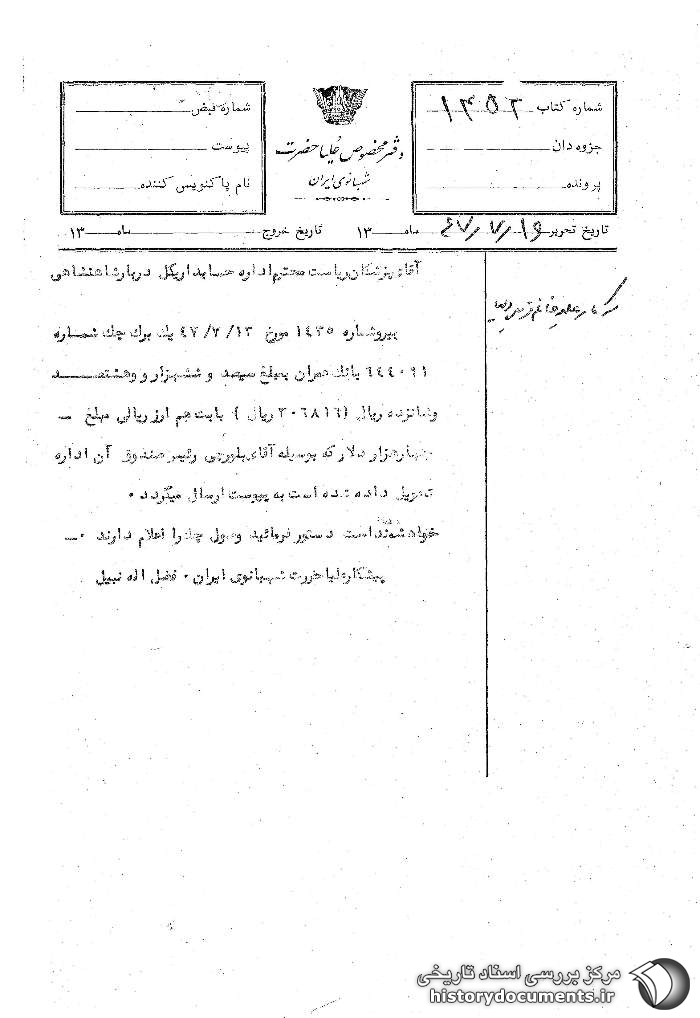 شماره کتاب ۱۴۵۲
جزوه دان
پرونده
دفتر مخصوص علیا حضرت
شهبانوی ایران
شماره قبض
پیوست
نام پاکنویس کننده
تاریخ تحریر ۱۶ / ۷ / ۴۷ ماه ۱۳ تاریخ خروج ماه ۱۳
آقای پزشکان ریاست محترم اداره حسابداریکل دربار شاهنشاهی
پیرو شماره ۱۴۳۵ مورخ ۱۳ /۷/ ۴۷ یک برگ چک شماره
۶۴۴۰۹۱ بانک عمران بمبلغ سیصد و ششهزار و وهشتصد
وشانزده ریال (۳۰۶۸۱۶ ریال ) بابت هم ارز ریالی مبلغ –
چهارهزار دلار که بوسیله آقای رئیس صندوق آن اداره
تحویل داده شده است به پیوست ارسال میگردد ۰
خواهشمنداست دستور فرمائید وصول چک را اعلام دارند ۰ –
پیشکار علیاحضرت شهبانوی ایران ۰ فضل اله نبیل
مرکز بررسی اسناد تاریخی
historydocuments.ir